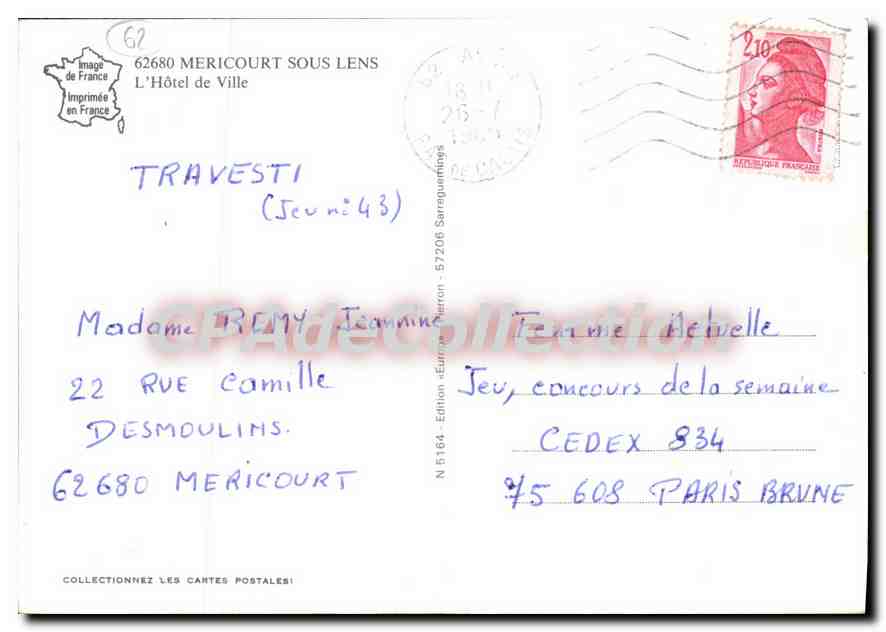 62
Image
de France
Imprimée
en France
62680 MERICOURT SOUS LENS
L'Hôtel de Ville
2,10
REPUBLIQUE FRANÇAISE
26-7
TRAVESTI
(Jeu n: 43)
Madame REMY Jeannine
22 RUE Camille
DESMOULINS.
62680 MERICOURT
COLLECTIONNEZ LES CARTES POSTALES!
N 5164 - Edition «Europ Pierron - 57206 Sarreguemines
Femme Actuelle
Jeu, concours de la semaine
CEDEX 834
75 608 PARIS BRUNE
CPAdeCollection